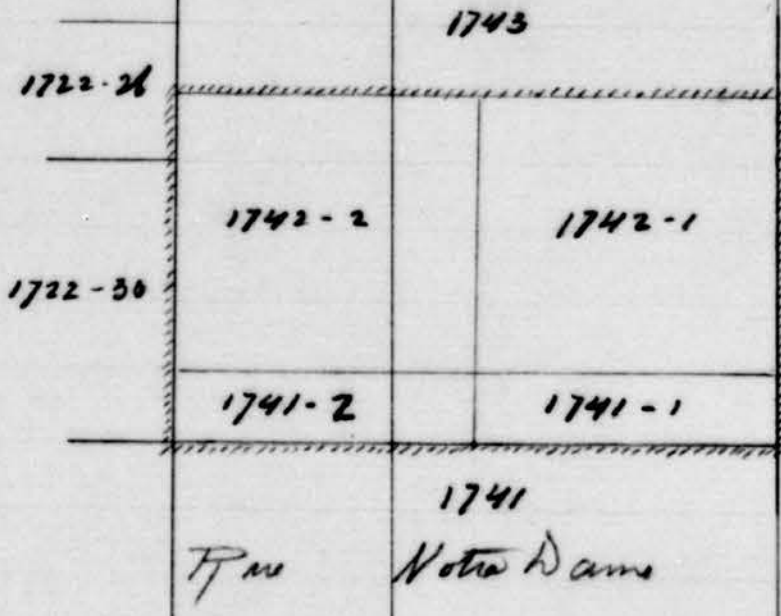 1743
1722-26
1742-2 1742-1
1722-30
1741-2 1741-1
1741
Rue Notre Dame